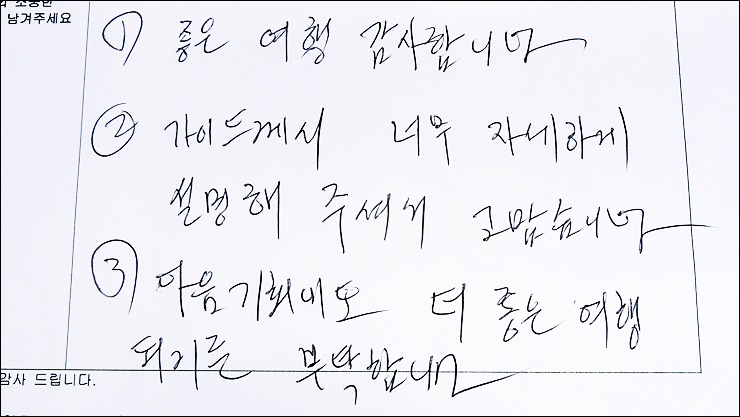 소중한
남겨주세요
① 좋은 여행 감사합니다
② 가이드께서 너무 자세하게
설명해 주셔서 고맙습니다
③ 다음기회에도 더 좋은 여행
되기를 부탁합니다
감사 드립니다.